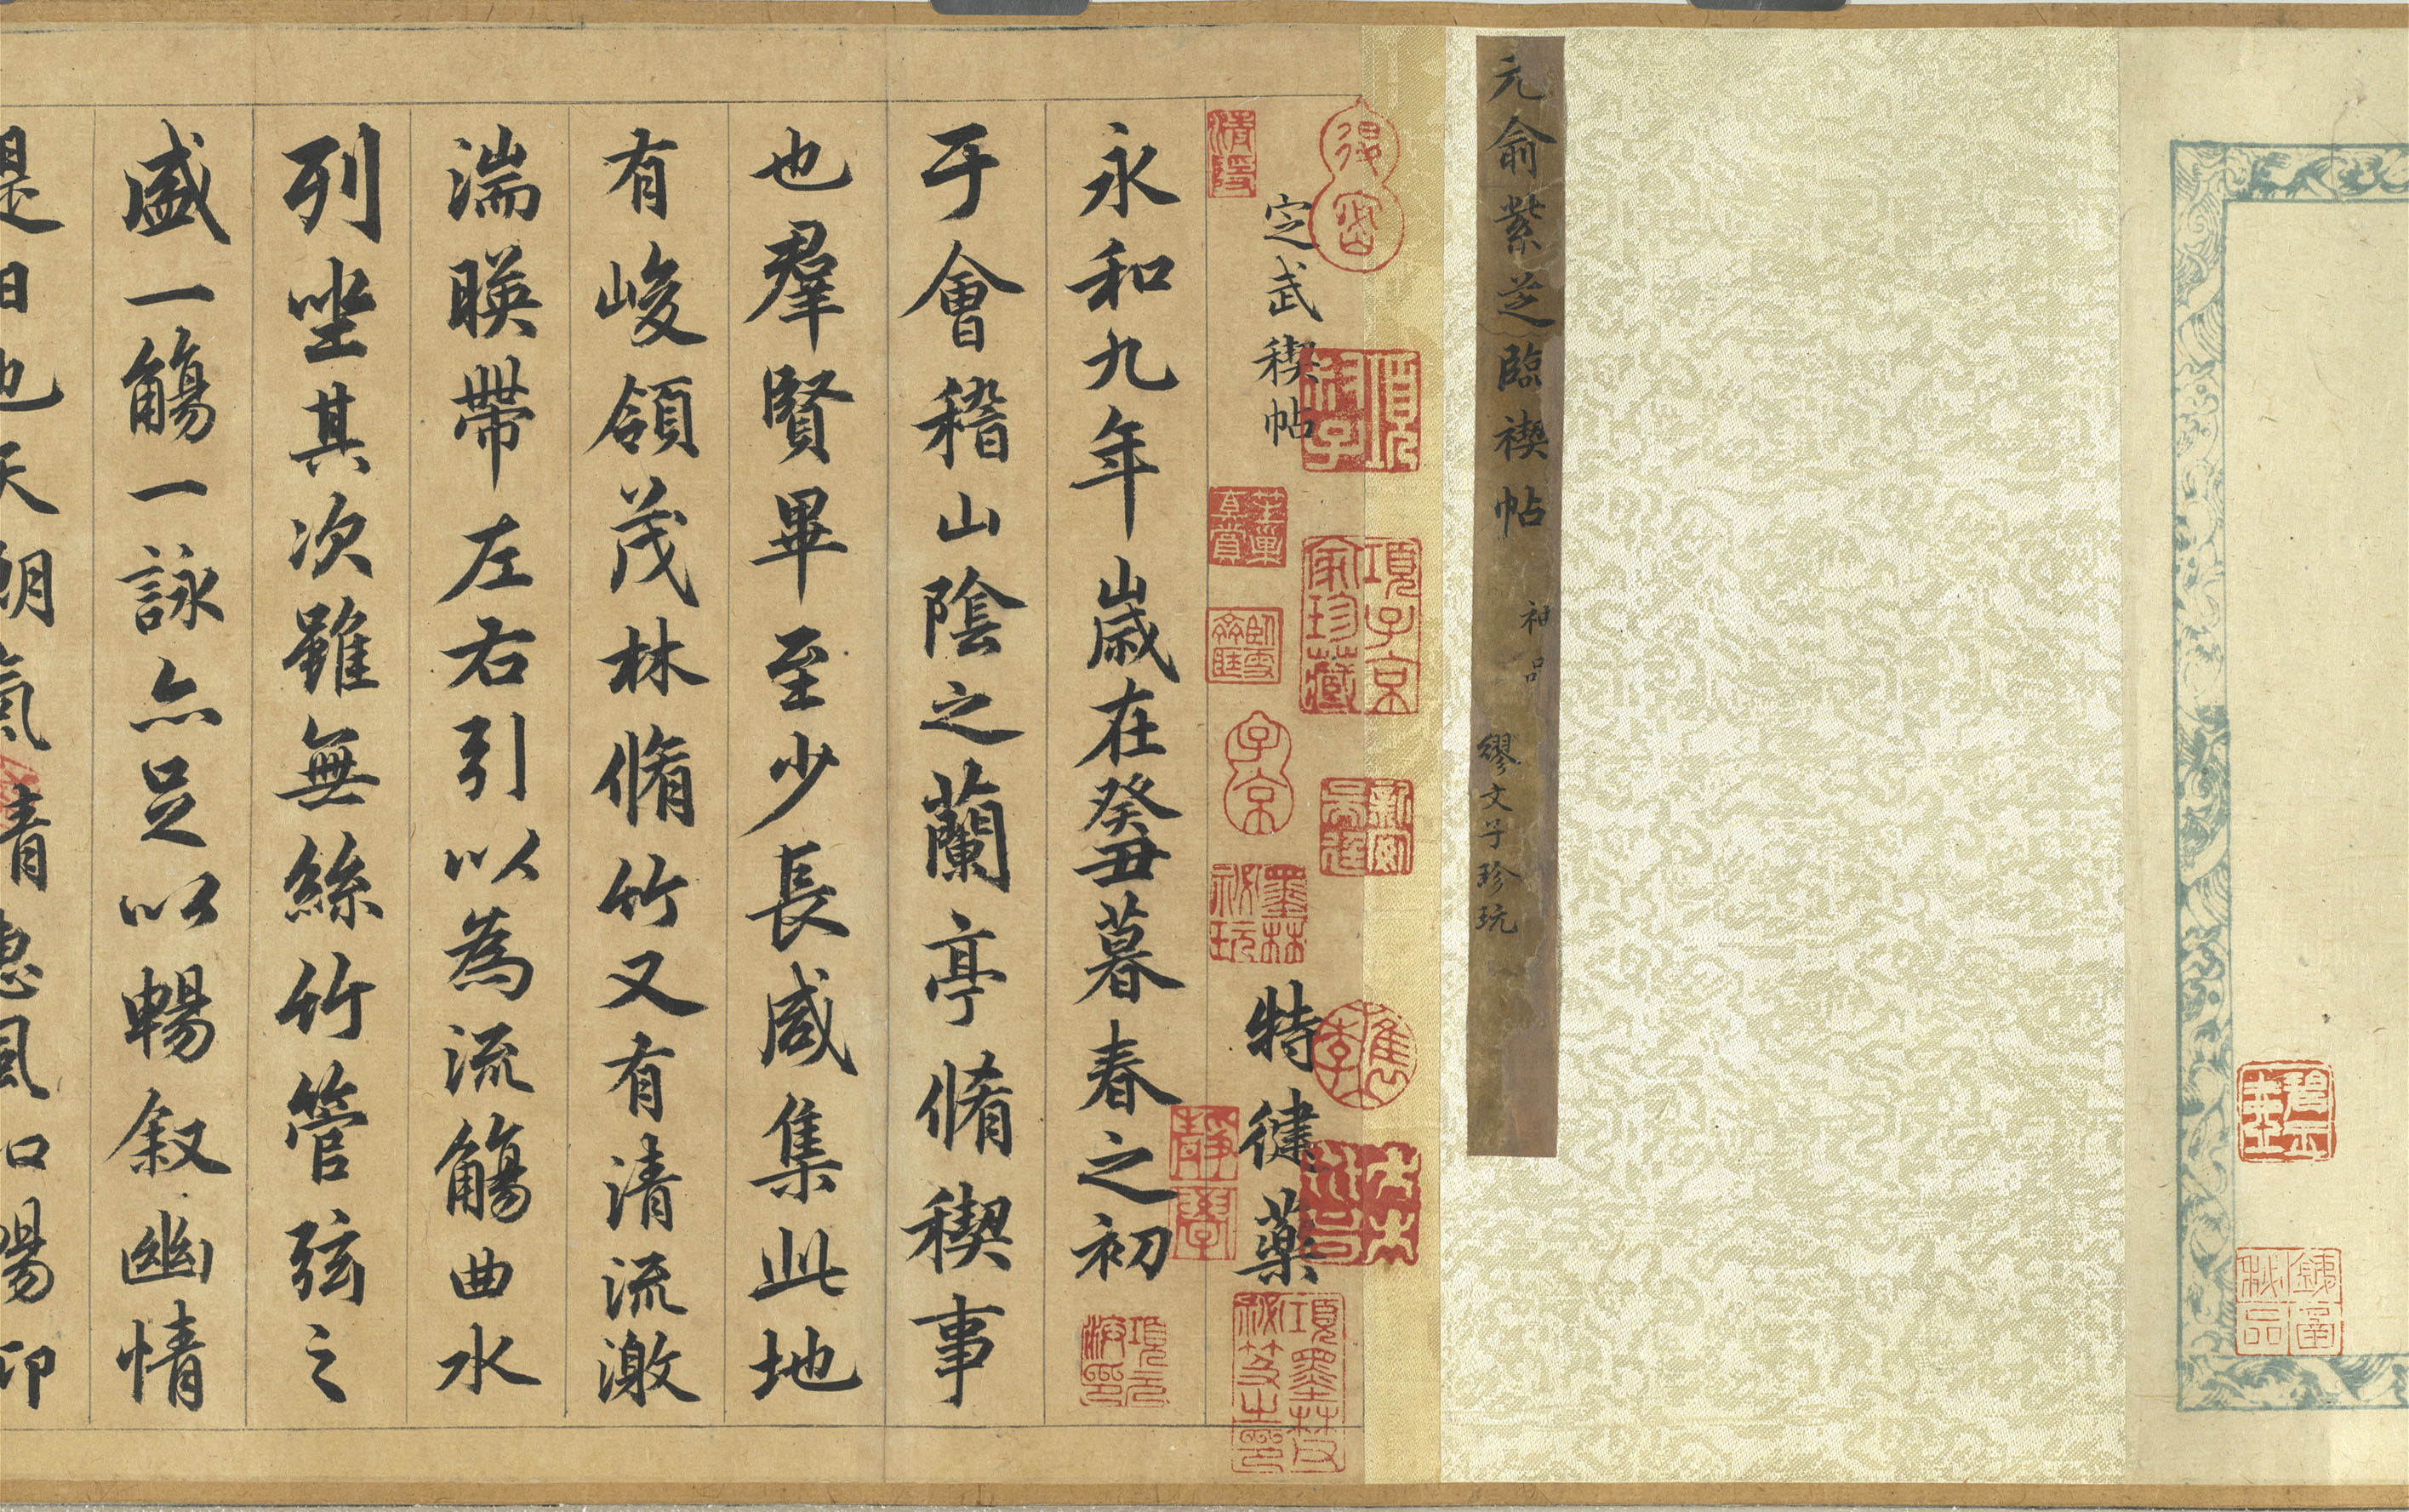 元俞紫芝臨禊帖
神品
繆文子珍玩
定武稧帖
特健藥
永和九年歲在癸丑暮春之初
于會稽山陰之蘭亭脩稧事
也羣賢畢至少長咸集此地
有峻領茂林脩竹又有清流激
湍暎帶左右引以為流觴曲水
列坐其次雖無絲竹管弦之
盛一觴一詠亦足以暢叙幽情
是日也天朗氣清惠風和暢仰
項子京家珍藏
子京
墨林祕玩
項墨林父祕笈之印
項元汴印